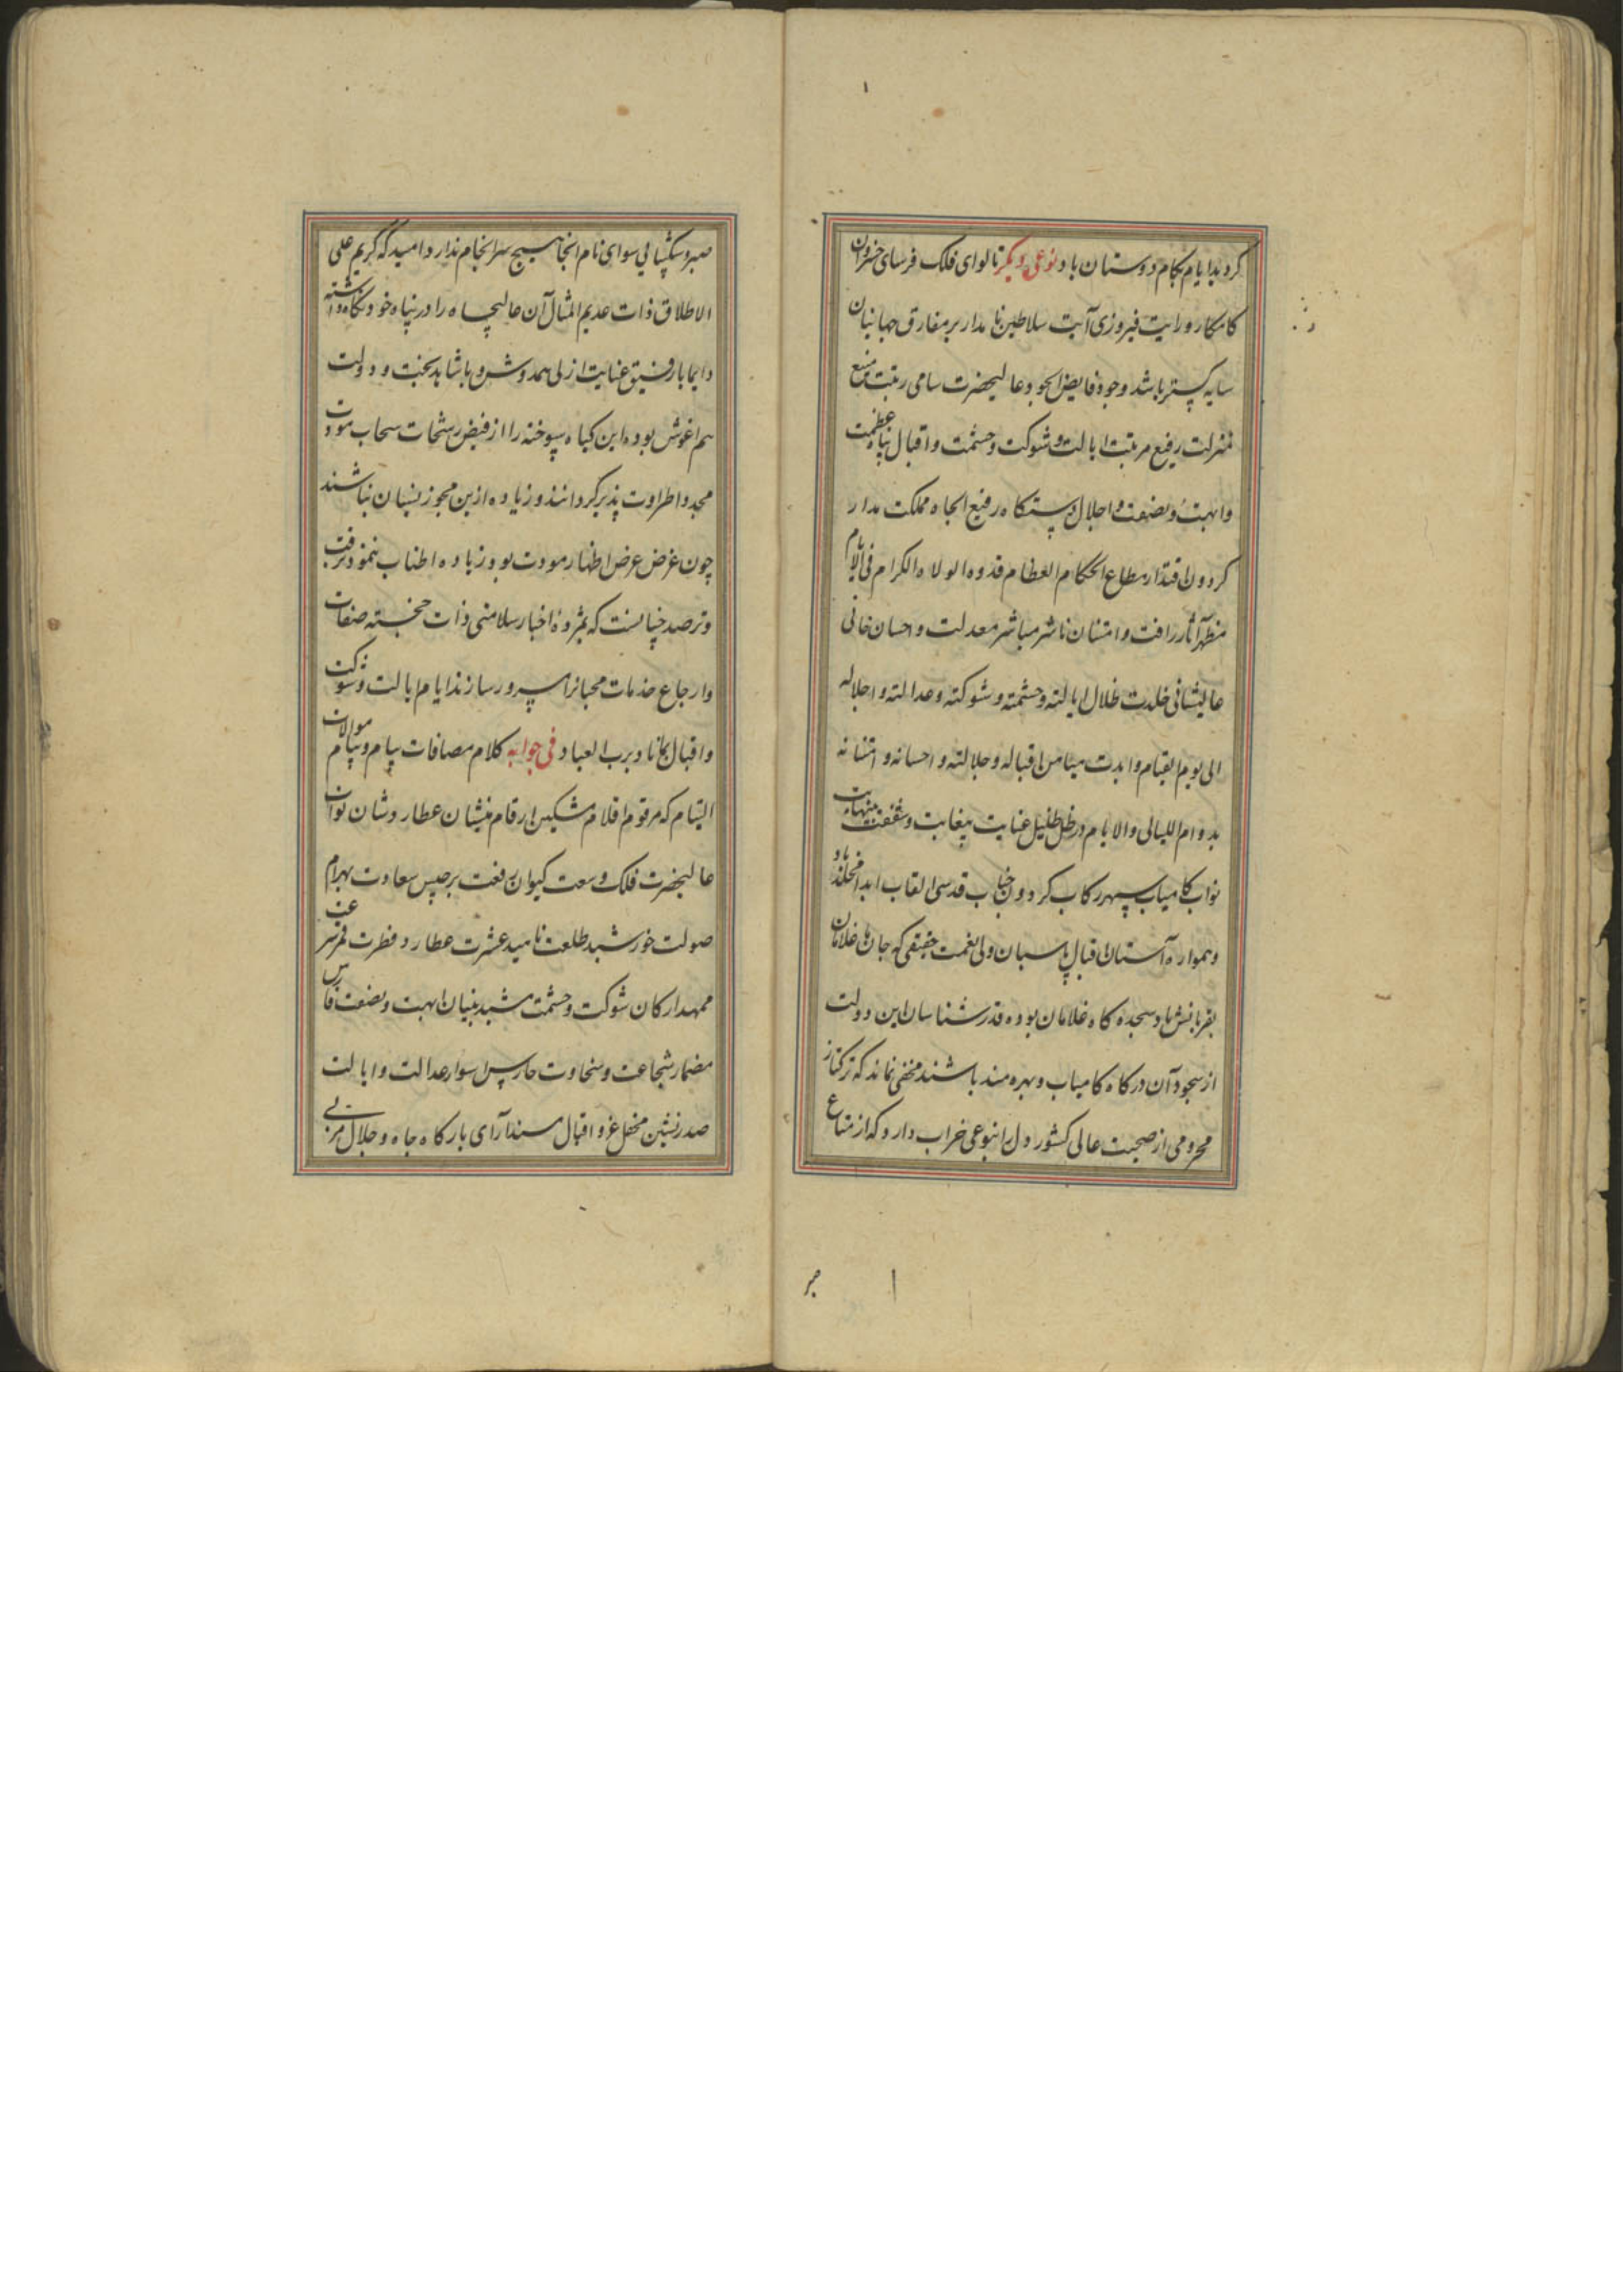 کردید ایام بکام دوستان باد نوعی دیکر تا لوای فلک فرسای خسروان
کامکار و رایت فیروزی آیت سلاطین نامدار بر مفارق جهانیان
سایه کستر باشد وجود فایض الجود عالیحضرت سامی رتبت منیع
منزلت رفیع مرتبت ایالت و شوکت و حشمت و اقبال پناه عظمت
و ابهت و بصفت و اجلال دستکاه رفیع الجاه مملکت مدار
کردون اقتدار مطاع الحکام العظام قدوه الولاه الکرام فی الایام
مظهر آثار رافت و امتنان ناشر مباشر معدلت و احسان خانی
عالیشانی خلدت ظلال ایالته و حشمته و شوکته و عدالته و اجلاله
الی یوم القیام و ابدت میامن اقباله و جلالته و احسانه و امتنانه
بدوام اللیالی والایام در ظل ظلیل عنایت بیغایت و شفقت بینهایت
نواب کامیاب سپهر رکاب کردون جناب قدسی القاب ابدا مخلد باد
و همواره آستان اقبال پاسبان ولی نعمت حقیقی که جان ها غلامان
بقربانش باد سجده کاه غلامان بوده قدرشناسان این دولت
از سجود آن درکاه کامیاب و بهره مند باشند مخفی نماند که ترکتاز
محرومی از صحبت عالی کشور دل را بنوعی خراب دارد که از متاع
صبر
صبر و شکیبائی سوای نام انجا هیچ سرانجام ندارد امید که کریم علی
الاطلاق ذات عدیم المثال آن عالیجاه را در پناه خود نکاه داشته
دایما با رفیق عنایت ازلی همدوش و با شاهد بخت و دولت
هم اغوش بوده این کیاه سوخته را از فیض رشحات سحاب مودت
مجددا طراوت پذیر کردانند و زیاده ازین مجوز نسیان نباشند
چون غرض عرض اظهار مودت بود زیاده اطناب ننمود ترقب
و ترصد چنانست که بمژده اخبار سلامتی ذات خجسته صفات
و ارجاع خدمات محبانرا مسرور سازند ایام ایالت و شوکت
و اقبال بکاناد برب العباد فی جوابه کلام مصافات پیام و پیام موالات
التیام که مرقوم اقلام مشکین ارقام منشیان عطارد شان نواب
عالیحضرت فلک وسعت کیوان رفعت برجیس سعادت بهرام
صولت خورشید طلعت ناهید عشرت عطارد فطرت قمر سرعت
ممهد ارکان شوکت و حشمت مشید بنیان ابهت و بصفت فارس
مضمار شجاعت و سخاوت حارس اسوار عدالت و ایالت
صدرنشین محفل عز و اقبال مسندآرای بارکاه جاه و جلال مربی